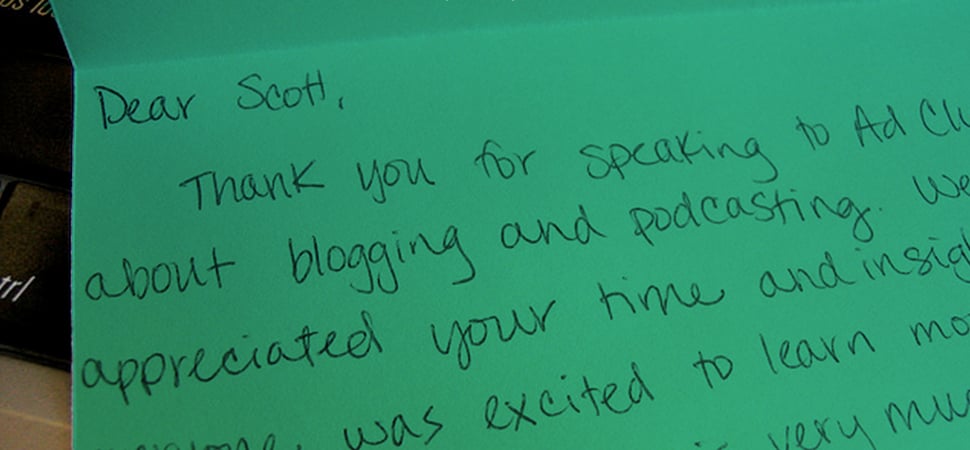 Dear Scott,
Thank you for speaking to Ad Clu
about blogging and podcasting. We
appreciated your time and insigh
was excited to learn mo
very muc
trl